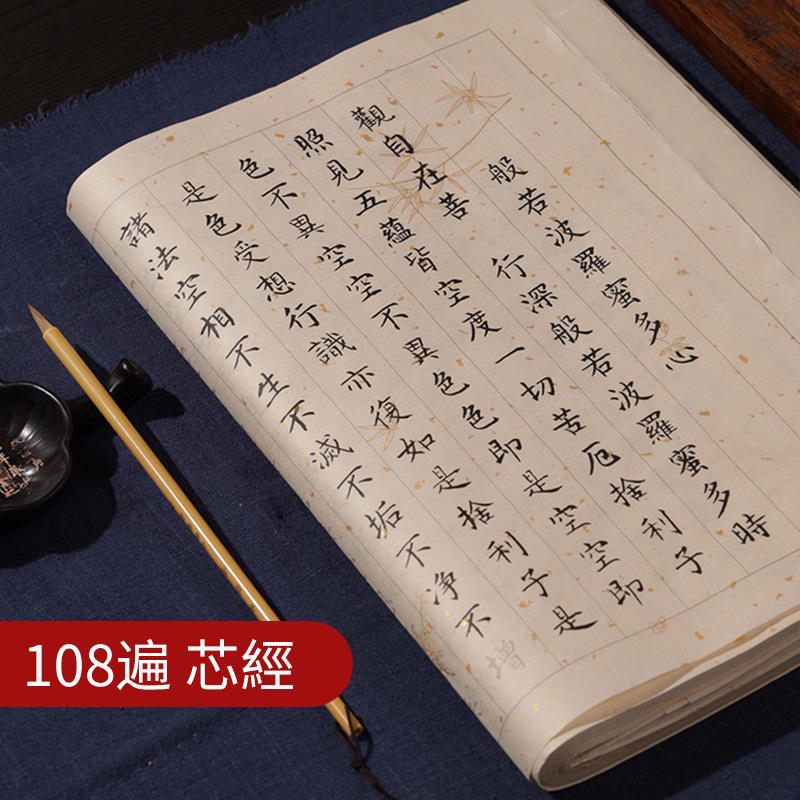 般若波羅蜜多心
觀自在菩行深般若波羅蜜多時
照見五蘊皆空度一切苦厄捨利子
色不異空空不異色色即是空空即
是色受想行識亦復如是捨利子是
諸法空相不生不滅不垢不净不增
108遍 芯經